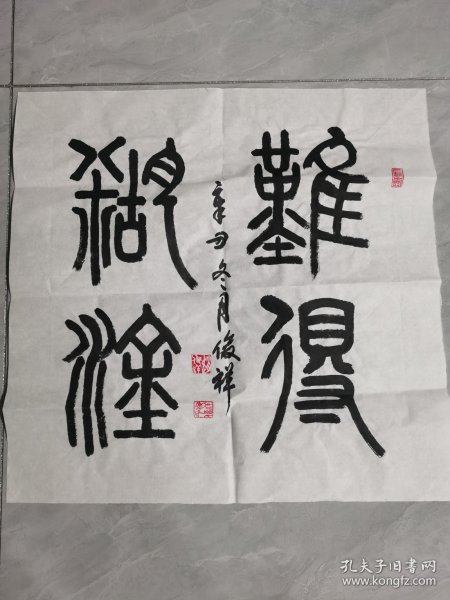 難得
糊塗
辛丑冬月俊祥
孔夫子旧书网
www.kongfz.com